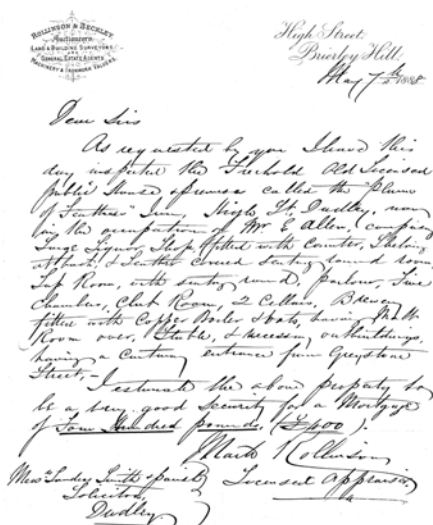 ROLLINSON & BECKLEY,
Auctioneers,
LAND & BUILDING SURVEYORS
AND
GENERAL ESTATE AGENTS
MACHINERY & IRONWORK VALUERS.
High Street,
Brierley Hill.
May 7th 1888
Dear Sirs
As requested by you I have this
day inspected the Freehold Old Licensed
public House & premises called the "Plume
of Feathers" Inn, High St, Dudley, now
in the occupation of Mr E Allen, comprising
Large Liquor Shop fitted with Counter, Shelving
& Leather covered seating round room,
Tap Room, with seating round, Parlour, Five
Chambers, Club Room, 2 Cellars, Brewery
fitted with Copper Boiler & vats, having Malt
Room over, Stable, & necessary outbuildings,
having a entrance from Greystone
Street,-
I estimate the above property to
be a very good security for a Mortgage
of Four Hundred pounds, (£400).
Mark Rollinson
Licensed Appraiser
Messrs Smith &
Solicitors
Dudley